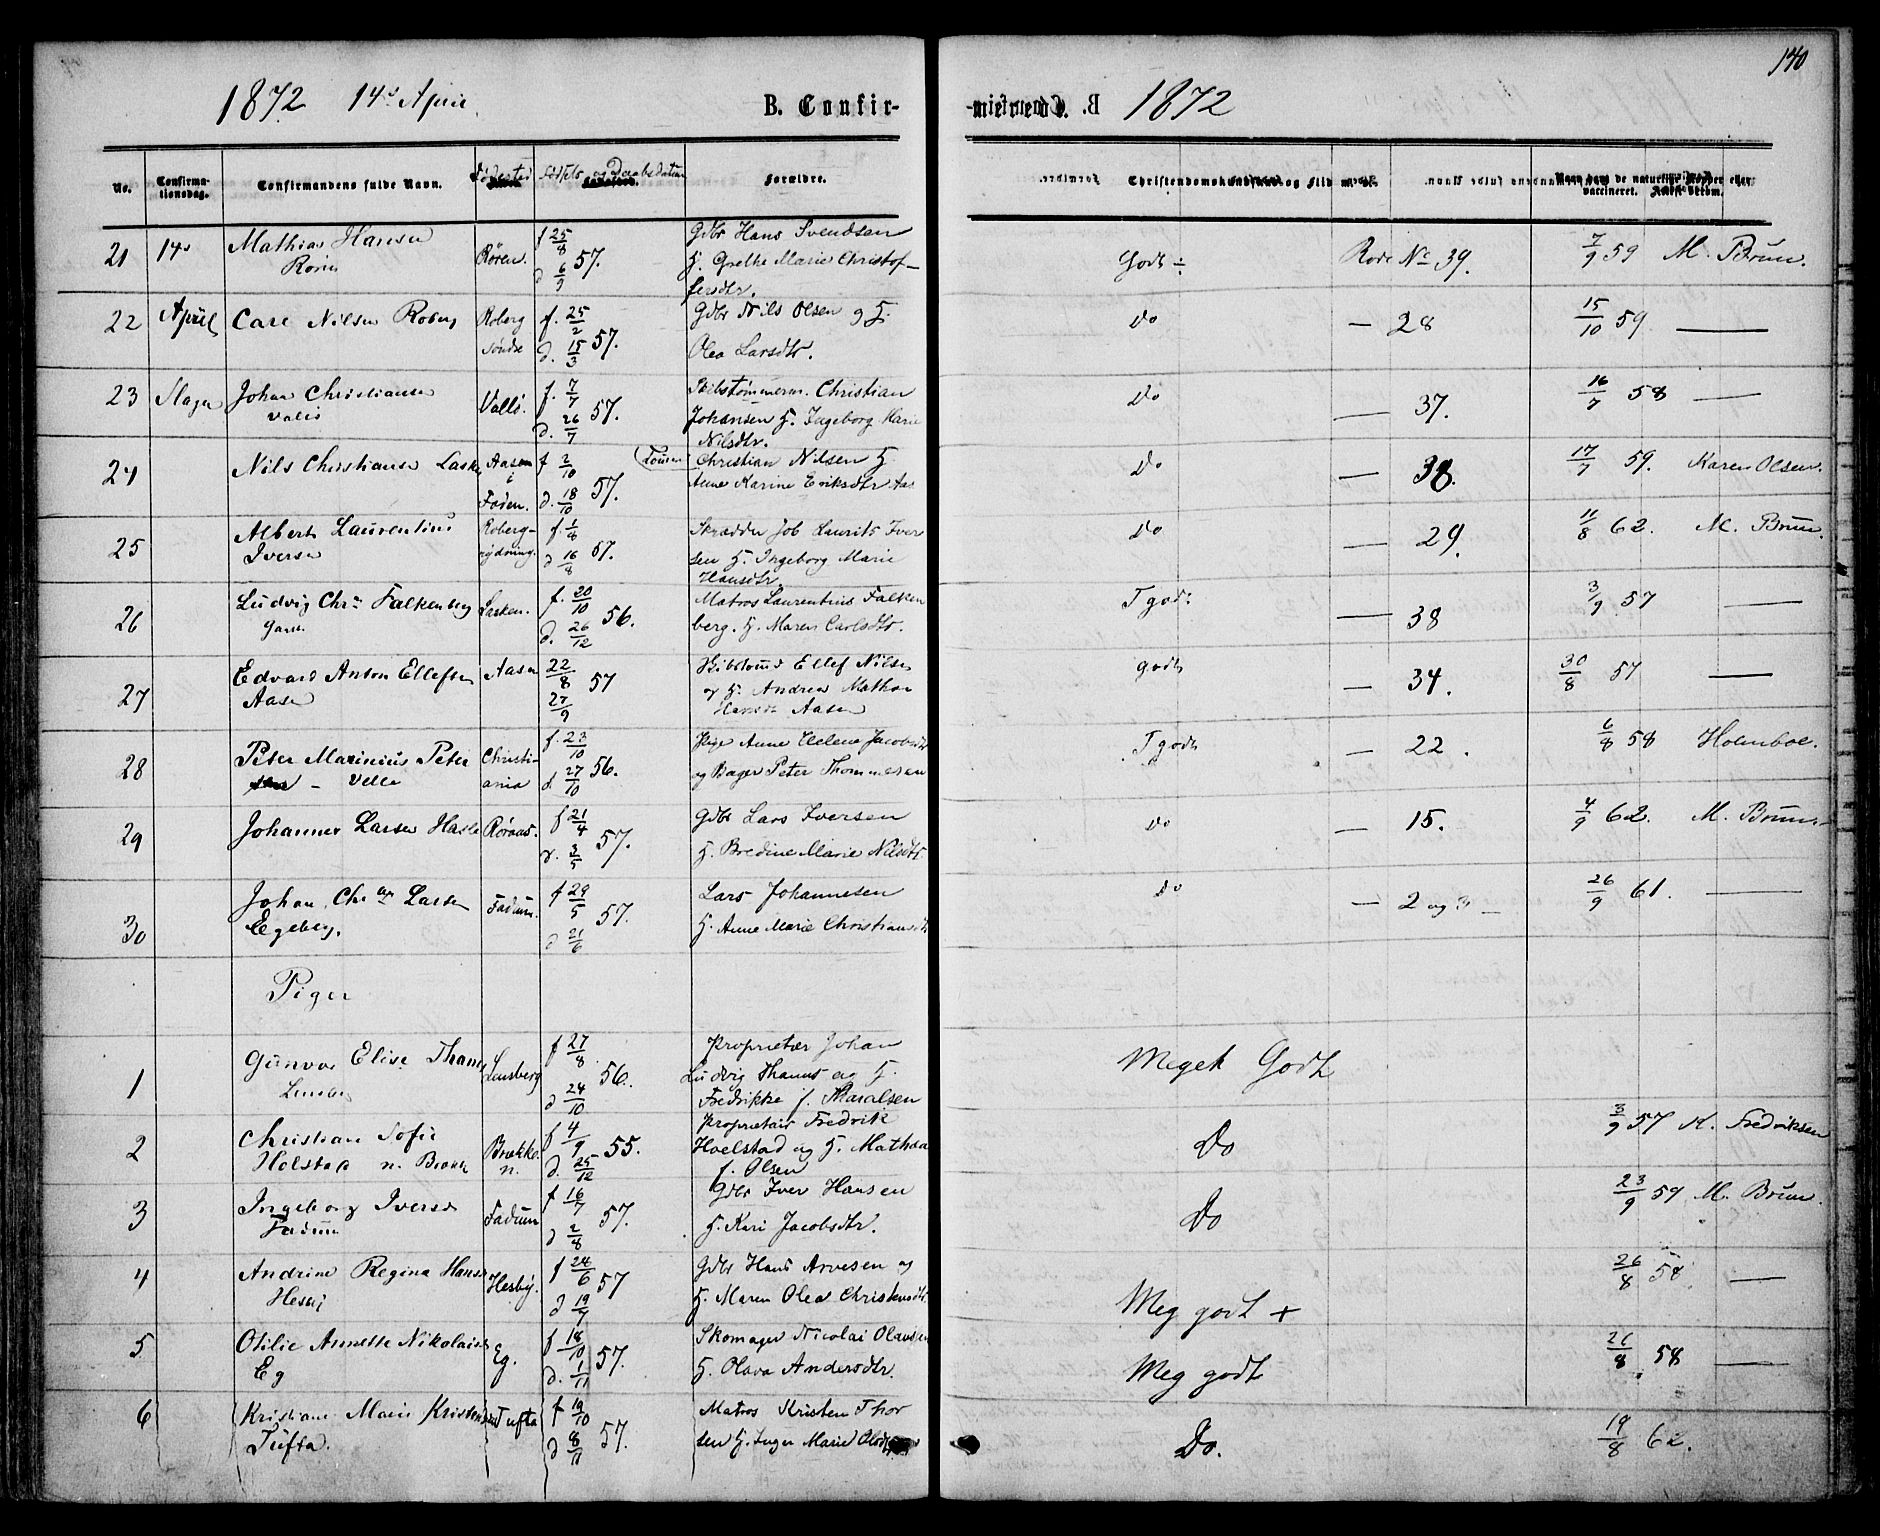 140
1872 14de April. B. Confir-
1872
No. Confirma-tionsdag. Confirmandens fulde Navn. Fødested Fødsels og Daabsdatum Forældre.
Christendomskundskab og Flid
vaccineret.
21 14de Mathias Hansen Røren. f 25/8 57. Gdbr Hans Svendsen Godt ÷ Rode No 39. 7/9 59 M. Bruun.
Røren d 6/9 H. Grethe Marie Christof-
fersdtr.
22 April Carl Nilsen Roberg Roberg f. 25/2 57. Gdbr Nils Olsen og H. Do — 28 15/10 59 —
søndre d. 15/3 Olea Larsdtr.
23 Slagen Johan Christiansen Vallö. f. 7/7 57. Skibstømmerm. Christian Do — 37. 16/7 58 —
Vallö d. 26/7 Johansen H. Ingeborg Marie
Nilsdtr.
24 Nils Christiansen Lasken Aasen f 2/10 57. Christian Nilsen H Do — 38. 17/7 59. Karen Olsen.
i
Foden. d. 18/10 Anne Karine Eriksdtr Aas
25 Albert Laurentius Roberg- f 1/8 57. Skrædder Job Laurits Iver Do — 29. 11/8 62. M. Bruun.
Iversen rydning. d 16/8 sen H. Ingeborg Marie
Hansdtr.
26 Ludvig Chrn Falkenberg Lasken. f. 20/10 56. Matros Laurentius Falken T godt — 38 3/9 57 —
d. 26/12 berg. H. Maren Carlsdtr.
27 Edvard Anton Ellefsen Aasen 22/8 57 Ellef Nilsen godt — 34. 30/8 57 —
Aasen 27/9 og H. Andrea Mathea
Aasen
28 Peter Marinius Peter Christi- f. 23/10 56. Pige Anne Helene Jacobsdtr T godt — 22. 6/8 58 Holmboe.
sen - Velle ania d. 27/10 og Bager Peter Thommesen
29 Johannes Larsen Hasle Röraas. f 21/4 57. Gdbr Lars Iversen Do — 15. 4/9 62. M. Bruun.
d. 3/5 H. Bredine Marie Nilsdtr.
30 Johan Chrn Larsen Fadum. f 29/5 57. Lars Johannesen Do — 2 og 3 — 26/9 61. —
Egeberg. d 21/6 H. Anne Marie Christiansdtr
Piger
1 Gunvor Elise Thams Linsberg f 27/8 56. Proprietær Johan Meget Godt
d 24/10 Ludvig Thams og H.
Fredrikke f. Tharalsen
2 Christian Sofie Brække f 4/9 55. Proprietair Fredrik Do 3/9 57 K. Fredriksen
Holstad n. Brække n. d. 25/12 Hoelstad og H. Mathea
f. Olsen
3 Ingeborg Iversen Fadum f 16/7 57. Gdbr Iver Hansen Do 23/9 59 M. Bruun.
Fadum d 2/8 H. Kari Jacobsdtr.
4 Andrine Regina Hansen Hesby. f 24/6 57 Gdbr Hans Arvesen og Meg godt + 26/8 58. —
Hesby d 19/7 H. Maren Olea Christensdtr.
5 Otilie Annette Nikolaisen Eg. f 18/10 57. Skomager Nicolai Olavsen Meg godt 21/8 58 —
Eg d. 1/11 H. Olava Andersdtr.
6 Kristiane Marie Kristensen Tufta f 19/10 57. Matros Kristen Thor Do. 19/8 62.
Tufta. d 8/11 sen H. Inger Marie